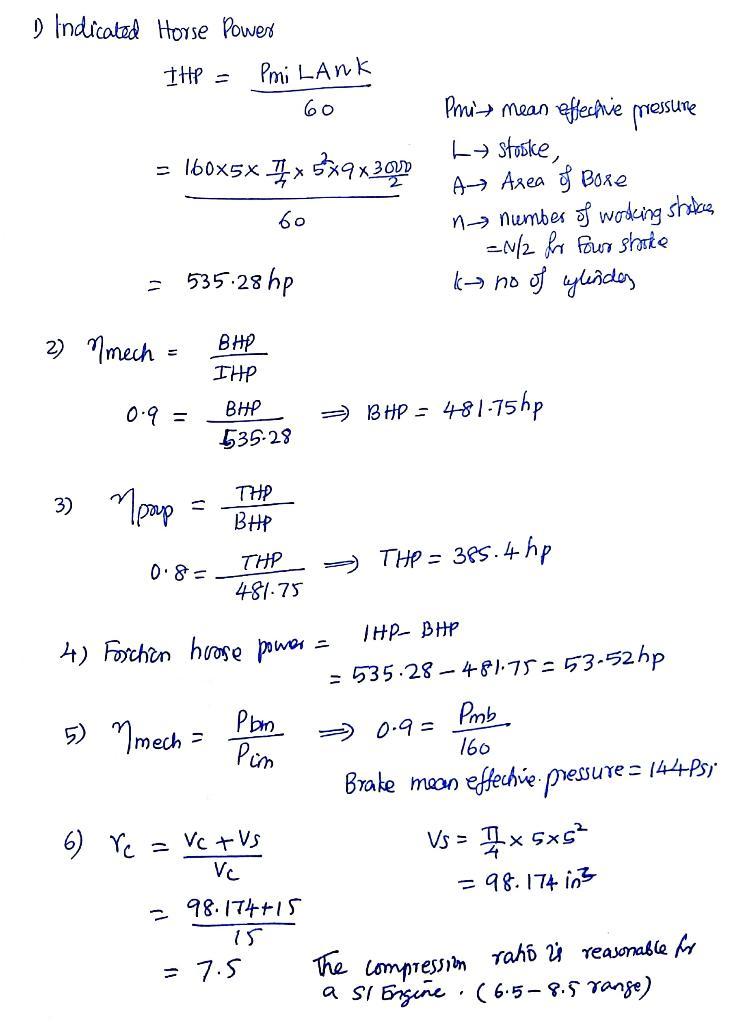 1) Indicated Horse Power
IHP = Pmi LAnk / 60
Pmi → mean effective pressure
L → stroke,
= 160×5× π/4 × 5²×9×3000/2 / 60
A → Area of Bore
n → number of working strokes
= N/2 for Four stroke
= 535.28 hp
k → no of cylinders
2) ηmech = BHP / IHP
0.9 = BHP / 535.28 ⇒ BHP = 481.75 hp
3) ηprop = THP / BHP
0.8 = THP / 481.75 ⇒ THP = 385.4 hp
4) Friction horse power = IHP - BHP
= 535.28 - 481.75 = 53.52 hp
5) ηmech = Pbm / Pim ⇒ 0.9 = Pmb / 160
Brake mean effective pressure = 144 Psi
6) rc = Vc + Vs / Vc
Vs = π/4 × 5×5²
= 98.174 in3
= 98.174+15 / 15
= 7.5
The compression ratio is reasonable for
a SI Engine. (6.5-8.5 range)